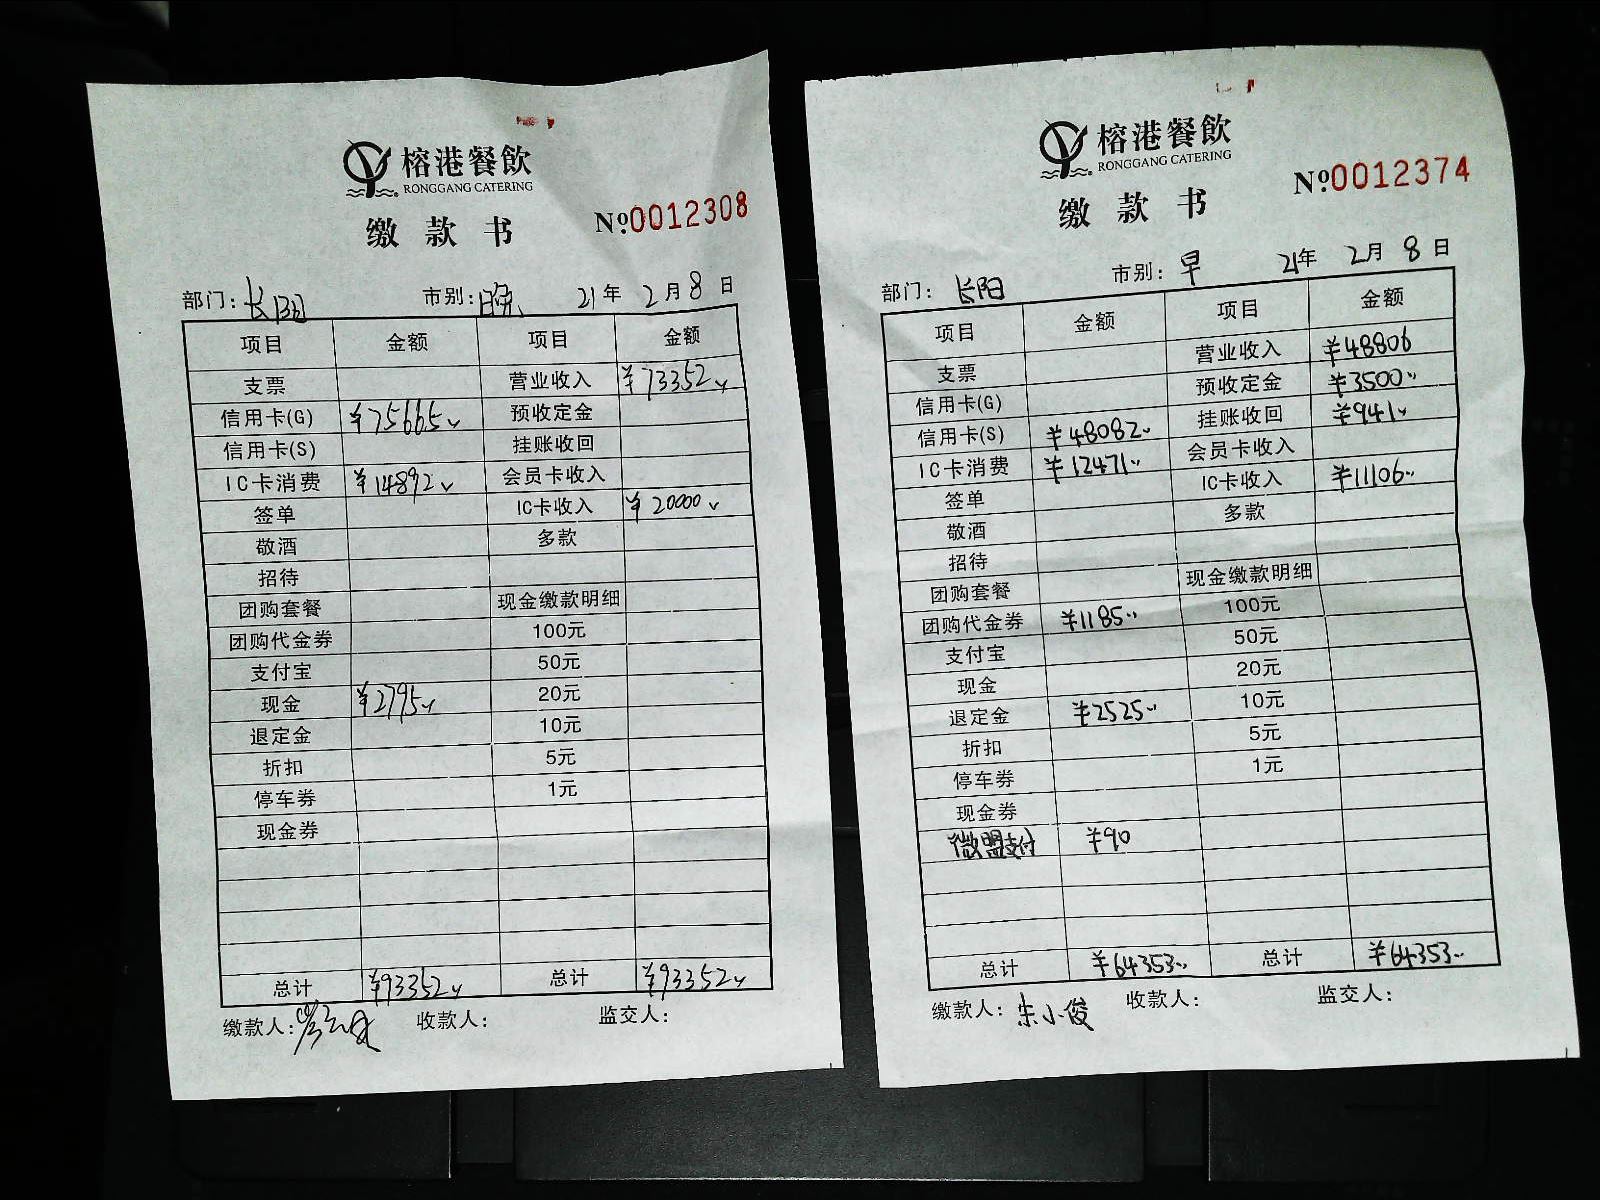 榕港餐飲
RONGGANG CATERING
缴款书
№0012308
部门：长阳 市别：晚 21年2月8日
项目 金额 项目 金额
支票 营业收入 ¥73352
信用卡(G) ¥75665 预收定金
信用卡(S) 挂账收回
IC卡消费 ¥14892 会员卡收入
签单 IC卡收入 ¥20000
敬酒 多款
招待
团购套餐 现金缴款明细
团购代金券 100元
支付宝 50元
现金 ¥2795 20元
退定金 10元
折扣 5元
停车券 1元
现金券
总计 ¥93352 总计 ¥93352
缴款人： 收款人： 监交人：
榕港餐飲
RONGGANG CATERING
缴款书
№0012374
部门：长阳 市别：早 21年2月8日
项目 金额 项目 金额
支票 营业收入 ¥48806
信用卡(G) 预收定金 ¥3500
信用卡(S) ¥48082 挂账收回 ¥941
IC卡消费 ¥12471 会员卡收入
签单 IC卡收入 ¥11106
敬酒 多款
招待
团购套餐 现金缴款明细
团购代金券 ¥1185 100元
支付宝 50元
现金 20元
退定金 ¥2525 10元
折扣 5元
停车券 1元
现金券
微盟支付 ¥90
总计 ¥64353 总计 ¥64353
缴款人：朱小俊 收款人： 监交人：